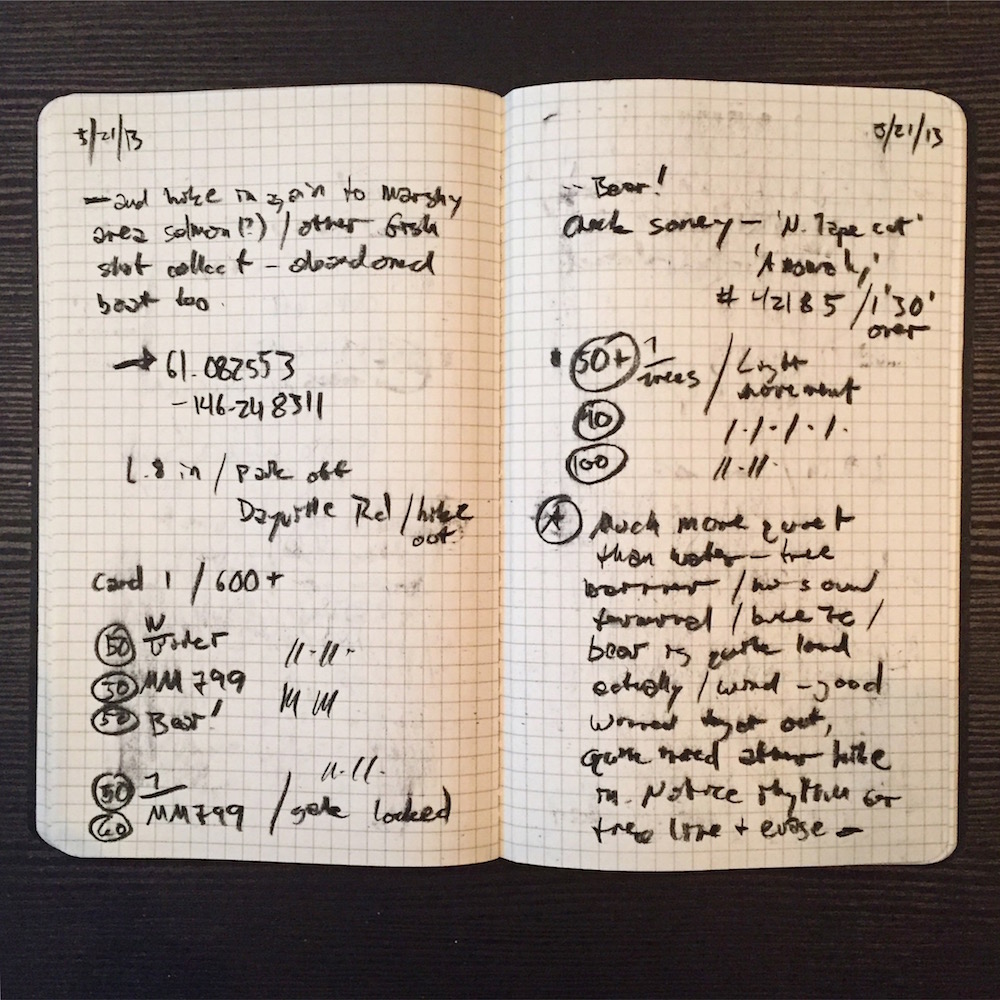 5/21/13
— and hike in again to marshy
area salmon(?) / other fish
shot collect – abandoned
boat too.
→ 61.082553
-146.248311
1.8 in / park off
Dayville Rd / hike
out.
Card 1 / 600+
50 Water 11.11.
50 MM 799
50 Bear!
11.11.
50 1
60 MM799 / gate locked
5/21/13
-- Bear!
Check – 'N. Tape cut'
'Anomaly'
# 42185 / 1'30'
over
50+ 1 trees / Light
movement
40 /./././.
100 11.11.
Much more quiet
than water – tree
barrier / no sound
/
bear is quite loud
actually / wind – good
Worried out,
quite tired after hike
in. Notice rhythm or
tree line + –